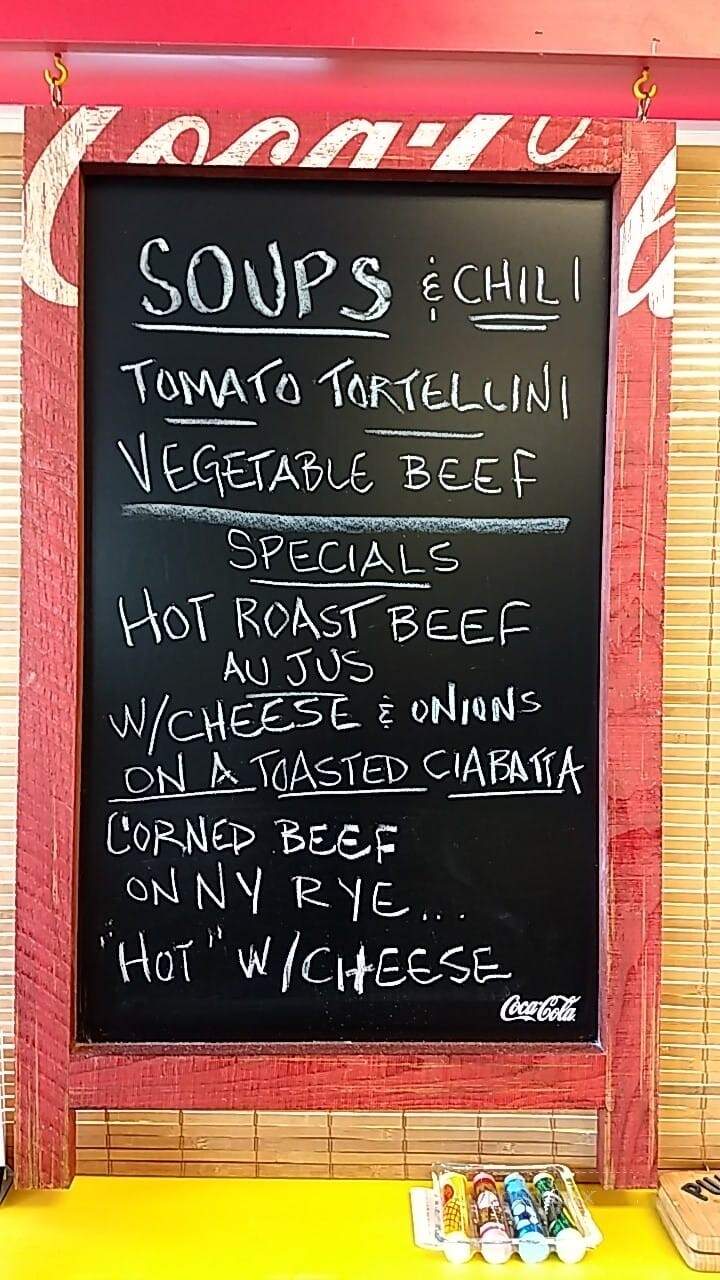 Coca-Cola
SOUPS & CHILI
TOMATO TORTELLINI
VEGETABLE BEEF
SPECIALS
HOT ROAST BEEF
AU JUS
W/CHEESE & ONIONS
ON A TOASTED CIABATTA
CORNED BEEF
ON NY RYE...
"HOT" W/CHEESE
Coca-Cola